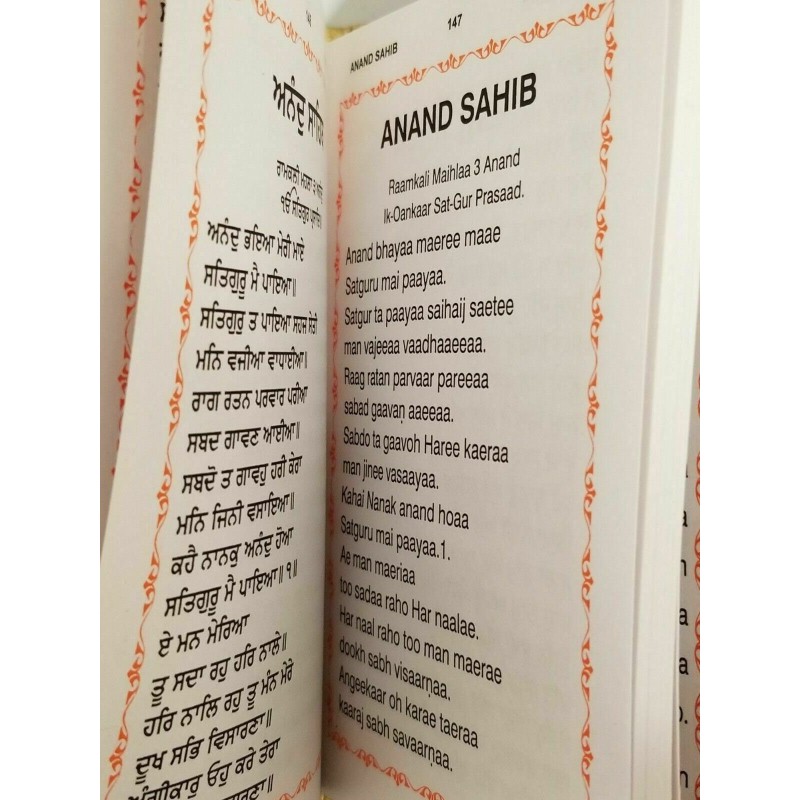 ਅਨੰਦੁ
ਰਾਮਕਲੀ ਮਹਲਾ ੩
ੴ ਸਤਿਗੁਰ ਪ੍ਰਸਾਦਿ॥
ਅਨੰਦੁ ਭਇਆ ਮੇਰੀ ਮਾਏ
ਸਤਿਗੁਰੂ ਮੈ ਪਾਇਆ॥
ਸਤਿਗੁਰੁ ਤ ਪਾਇਆ ਸਹਜ ਸੇਤੀ
ਮਨਿ ਵਜੀਆ ਵਾਧਾਈਆ॥
ਰਾਗ ਰਤਨ ਪਰਵਾਰ ਪਰੀਆ
ਸਬਦ ਗਾਵਣ ਆਈਆ॥
ਸਬਦੋ ਤ ਗਾਵਹੁ ਹਰੀ ਕੇਰਾ
ਮਨਿ ਜਿਨੀ ਵਸਾਇਆ॥
ਕਹੈ ਨਾਨਕੁ ਅਨੰਦੁ ਹੋਆ
ਸਤਿਗੁਰੂ ਮੈ ਪਾਇਆ॥੧॥
ਏ ਮਨ ਮੇਰਿਆ
ਤੂ ਸਦਾ ਰਹੁ ਹਰਿ ਨਾਲੇ॥
ਹਰਿ ਨਾਲਿ ਰਹੁ ਤੂ ਮੰਨ ਮੇਰੇ
ਦੂਖ ਸਭਿ ਵਿਸਾਰਣਾ॥
ਅੰਗੀਕਾਰੁ ਓਹੁ ਕਰੇ ਤੇਰਾ
ਕਾਰਜ ਸਭਿ ਸਵਾਰਣਾ॥
ANAND SAHIB
147
ANAND SAHIB
Raamkali Maihlaa 3 Anand
Ik-Oankaar Sat-Gur Prasaad.
Anand bhayaa maeree maae
Satguru mai paayaa.
Satgur ta paayaa saihaij saetee
man vajeeaa vaadhaaeeaa.
Raag ratan parvaar pareeaa
sabad gaavaṇ aaeeaa.
Sabdo ta gaavoh Haree kaeraa
man jinee vasaayaa.
Kahai Nanak anand hoaa
Satguru mai paayaa.1.
Ae man maeriaa
too sadaa raho Har naalae.
Har naal raho too man maerae
dookh sabh visaarṇaa.
Angeekaar oh karae taeraa
kaaraj sabh savaarṇaa.